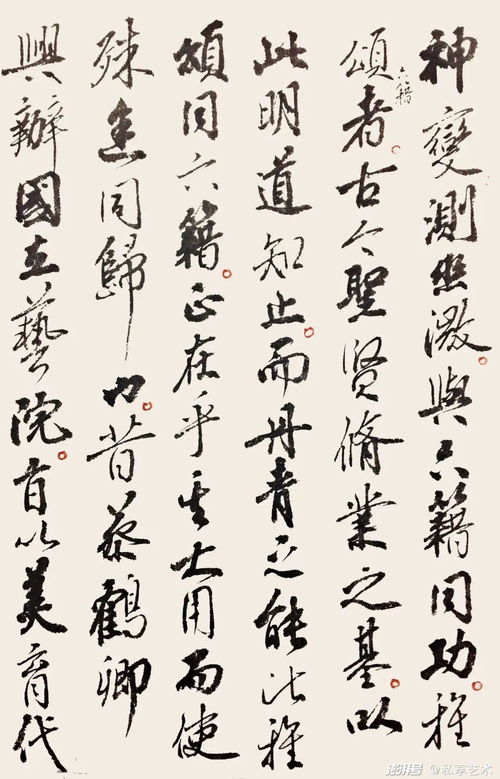 神變測幽微與六籍同功雅
頌者古今聖賢脩業之基以
六籍
此明道知止而丹青之能比雅
頌同六籍正在乎其大用而使
殊途同歸也昔蔡鶴卿
興辦國立藝院首以美育代
澎湃号@私享艺术